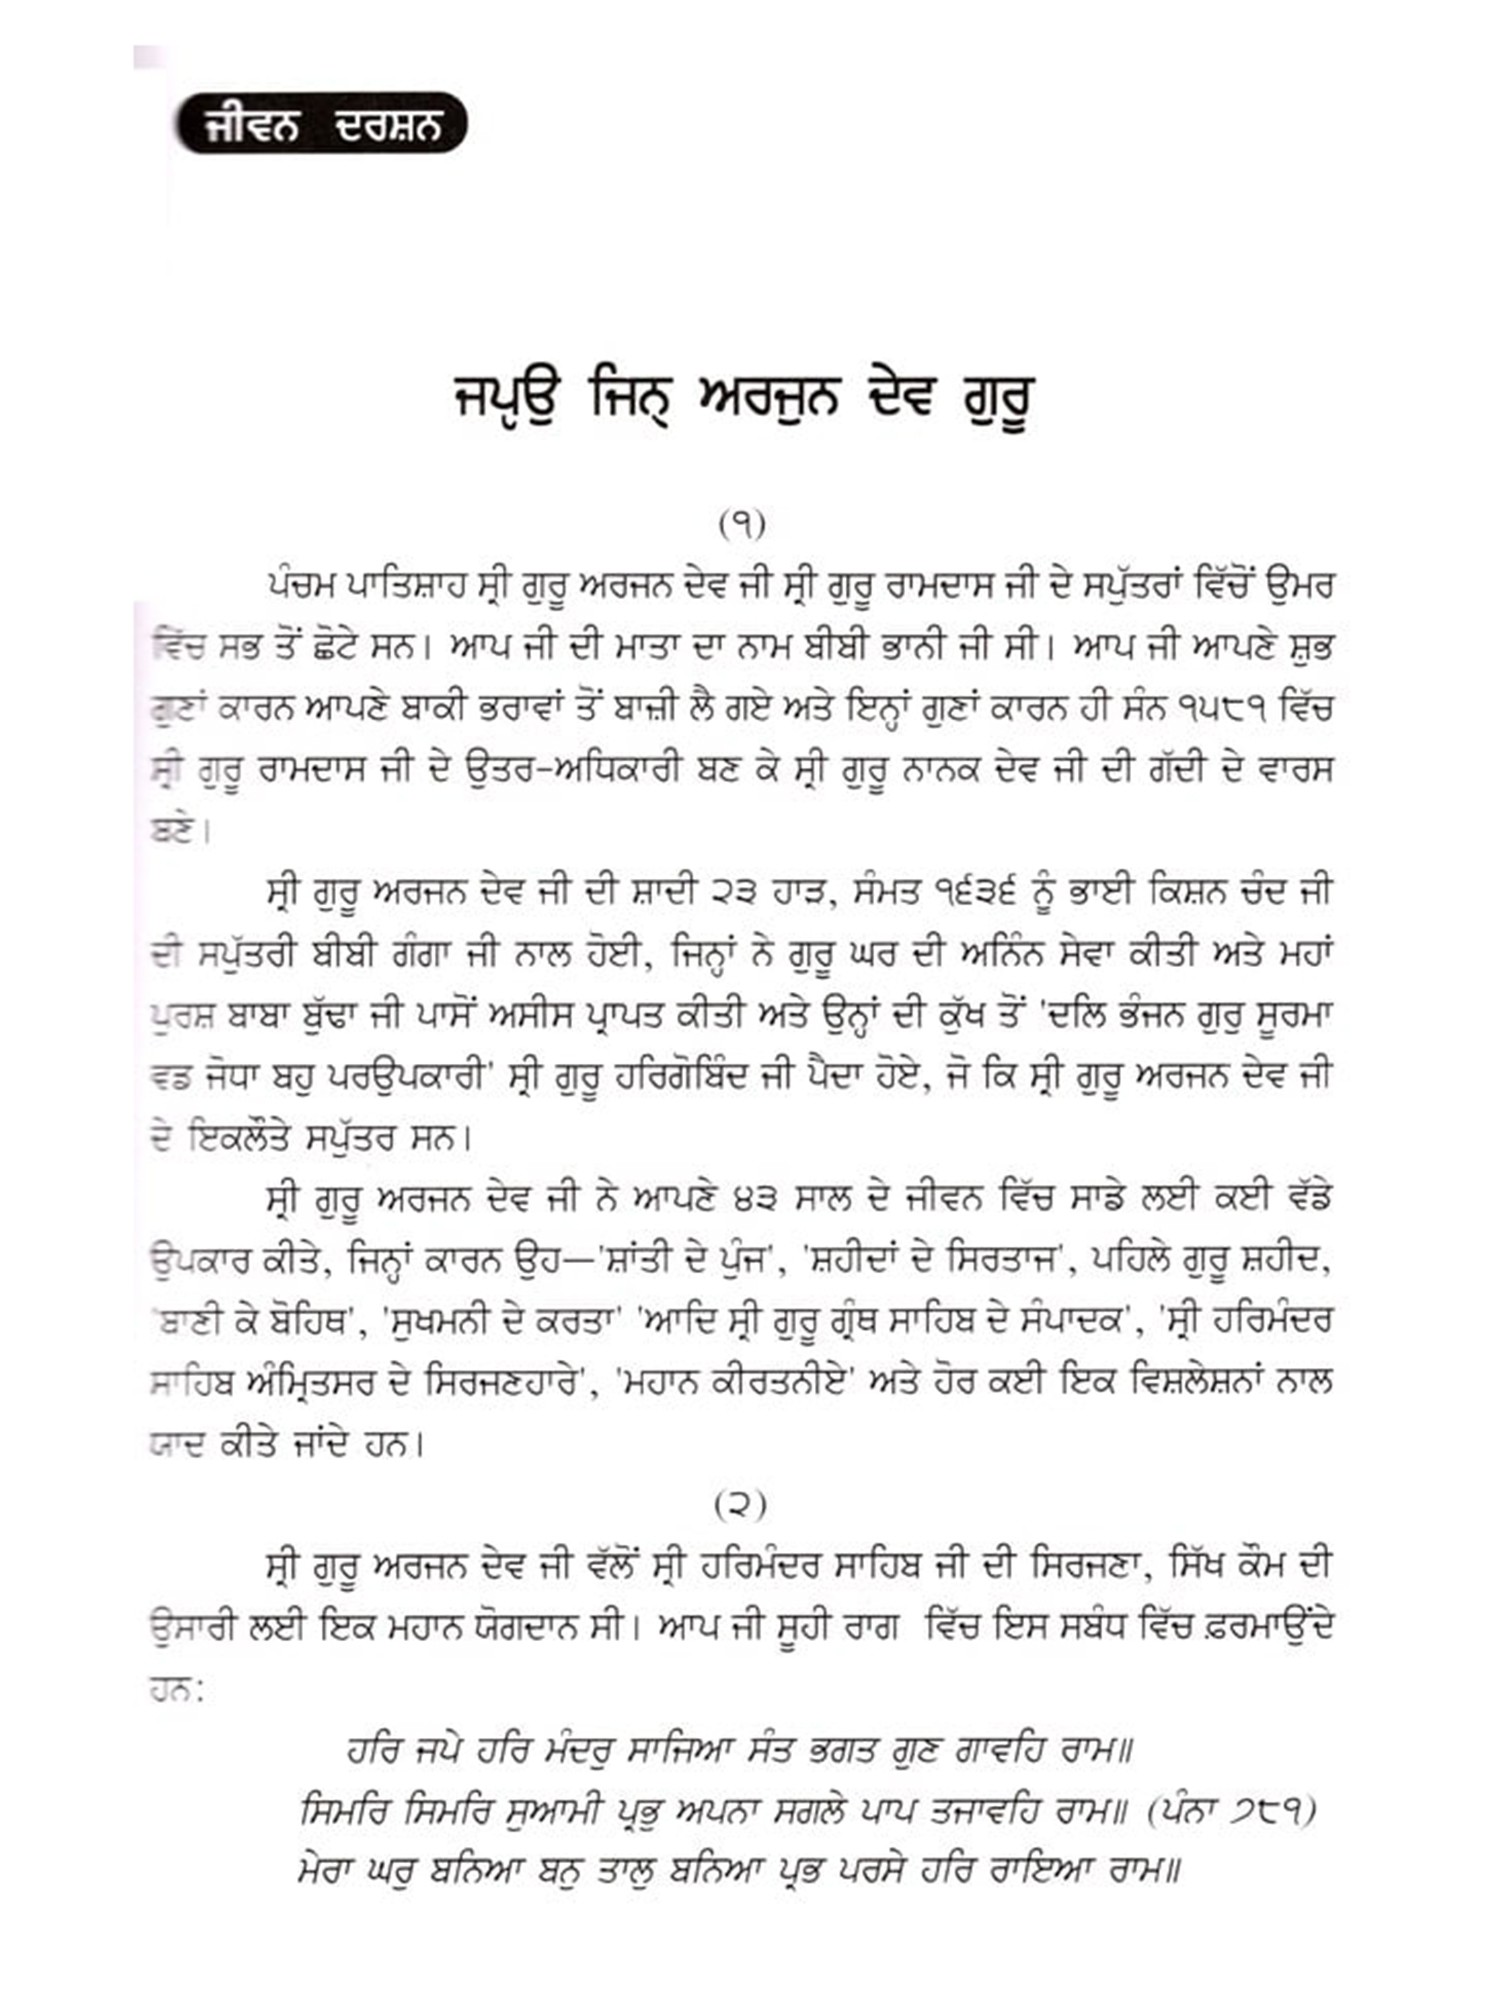 ਜੀਵਨ ਦਰਸ਼ਨ
ਜਪੵਉ ਜਿਨੑ ਅਰਜੁਨ ਦੇਵ ਗੁਰੂ
(੧)
ਪੰਚਮ ਪਾਤਿਸ਼ਾਹ ਸ੍ਰੀ ਗੁਰੂ ਅਰਜਨ ਦੇਵ ਜੀ ਸ੍ਰੀ ਗੁਰੂ ਰਾਮਦਾਸ ਜੀ ਦੇ ਸਪੁੱਤਰਾਂ ਵਿੱਚੋਂ ਉਮਰ
ਵਿੱਚ ਸਭ ਤੋਂ ਛੋਟੇ ਸਨ। ਆਪ ਜੀ ਦੀ ਮਾਤਾ ਦਾ ਨਾਮ ਬੀਬੀ ਭਾਨੀ ਜੀ ਸੀ। ਆਪ ਜੀ ਆਪਣੇ ਸ਼ੁਭ
ਗੁਣਾਂ ਕਾਰਨ ਆਪਣੇ ਬਾਕੀ ਭਰਾਵਾਂ ਤੋਂ ਬਾਜ਼ੀ ਲੈ ਗਏ ਅਤੇ ਇਨ੍ਹਾਂ ਗੁਣਾਂ ਕਾਰਨ ਹੀ ਸੰਨ ੧੫੮੧ ਵਿੱਚ
ਸ੍ਰੀ ਗੁਰੂ ਰਾਮਦਾਸ ਜੀ ਦੇ ਉਤਰ-ਅਧਿਕਾਰੀ ਬਣ ਕੇ ਸ੍ਰੀ ਗੁਰੂ ਨਾਨਕ ਦੇਵ ਜੀ ਦੀ ਗੱਦੀ ਦੇ ਵਾਰਸ
ਬਣੇ।
ਸ੍ਰੀ ਗੁਰੂ ਅਰਜਨ ਦੇਵ ਜੀ ਦੀ ਸ਼ਾਦੀ ੨੩ ਹਾੜ, ਸੰਮਤ ੧੬੩੬ ਨੂੰ ਭਾਈ ਕਿਸ਼ਨ ਚੰਦ ਜੀ
ਦੀ ਸਪੁੱਤਰੀ ਬੀਬੀ ਗੰਗਾ ਜੀ ਨਾਲ ਹੋਈ, ਜਿਨ੍ਹਾਂ ਨੇ ਗੁਰੂ ਘਰ ਦੀ ਅਨਿੰਨ ਸੇਵਾ ਕੀਤੀ ਅਤੇ ਮਹਾਂ
ਪੁਰਸ਼ ਬਾਬਾ ਬੁੱਢਾ ਜੀ ਪਾਸੋਂ ਅਸੀਸ ਪ੍ਰਾਪਤ ਕੀਤੀ ਅਤੇ ਉਨ੍ਹਾਂ ਦੀ ਕੁੱਖ ਤੋਂ 'ਦਲਿ ਭੰਜਨ ਗੁਰੁ ਸੂਰਮਾ
ਵਡ ਜੋਧਾ ਬਹੁ ਪਰਉਪਕਾਰੀ' ਸ੍ਰੀ ਗੁਰੂ ਹਰਿਗੋਬਿੰਦ ਜੀ ਪੈਦਾ ਹੋਏ, ਜੋ ਕਿ ਸ੍ਰੀ ਗੁਰੂ ਅਰਜਨ ਦੇਵ ਜੀ
ਦੇ ਇਕਲੌਤੇ ਸਪੁੱਤਰ ਸਨ।
ਸ੍ਰੀ ਗੁਰੂ ਅਰਜਨ ਦੇਵ ਜੀ ਨੇ ਆਪਣੇ ੪੩ ਸਾਲ ਦੇ ਜੀਵਨ ਵਿੱਚ ਸਾਡੇ ਲਈ ਕਈ ਵੱਡੇ
ਉਪਕਾਰ ਕੀਤੇ, ਜਿਨ੍ਹਾਂ ਕਾਰਨ ਉਹ—'ਸ਼ਾਂਤੀ ਦੇ ਪੁੰਜ', 'ਸ਼ਹੀਦਾਂ ਦੇ ਸਿਰਤਾਜ', ਪਹਿਲੇ ਗੁਰੂ ਸ਼ਹੀਦ,
'ਬਾਣੀ ਕੇ ਬੋਹਿਥ', 'ਸੁਖਮਨੀ ਦੇ ਕਰਤਾ' 'ਆਦਿ ਸ੍ਰੀ ਗੁਰੂ ਗ੍ਰੰਥ ਸਾਹਿਬ ਦੇ ਸੰਪਾਦਕ', 'ਸ੍ਰੀ ਹਰਿਮੰਦਰ
ਸਾਹਿਬ ਅੰਮ੍ਰਿਤਸਰ ਦੇ ਸਿਰਜਣਹਾਰੇ', 'ਮਹਾਨ ਕੀਰਤਨੀਏ' ਅਤੇ ਹੋਰ ਕਈ ਇਕ ਵਿਸ਼ਲੇਸ਼ਨਾਂ ਨਾਲ
ਯਾਦ ਕੀਤੇ ਜਾਂਦੇ ਹਨ।
(੨)
ਸ੍ਰੀ ਗੁਰੂ ਅਰਜਨ ਦੇਵ ਜੀ ਵੱਲੋਂ ਸ੍ਰੀ ਹਰਿਮੰਦਰ ਸਾਹਿਬ ਜੀ ਦੀ ਸਿਰਜਣਾ, ਸਿੱਖ ਕੌਮ ਦੀ
ਉਸਾਰੀ ਲਈ ਇਕ ਮਹਾਨ ਯੋਗਦਾਨ ਸੀ। ਆਪ ਜੀ ਸੂਹੀ ਰਾਗ ਵਿੱਚ ਇਸ ਸਬੰਧ ਵਿੱਚ ਫ਼ਰਮਾਉਂਦੇ
ਹਨ:
ਹਰਿ ਜਪੇ ਹਰਿ ਮੰਦਰੁ ਸਾਜਿਆ ਸੰਤ ਭਗਤ ਗੁਣ ਗਾਵਹਿ ਰਾਮ॥
ਸਿਮਰਿ ਸਿਮਰਿ ਸੁਆਮੀ ਪ੍ਰਭੁ ਅਪਨਾ ਸਗਲੇ ਪਾਪ ਤਜਾਵਹਿ ਰਾਮ॥ (ਪੰਨਾ ੭੮੧)
ਮੇਰਾ ਘਰੁ ਬਨਿਆ ਬਨੁ ਤਾਲੁ ਬਨਿਆ ਪ੍ਰਭ ਪਰਸੇ ਹਰਿ ਰਾਇਆ ਰਾਮ॥